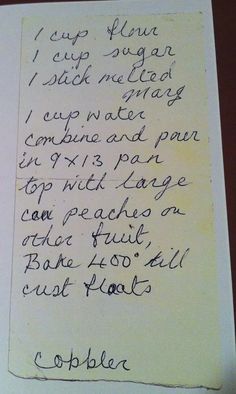 1 cup flour
1 cup sugar
1 stick melted
Marg
1 cup water
combine and pour
in 9x13 pan
top with large
can peaches or
other fruit,
Bake 400° till
crust floats
cobbler